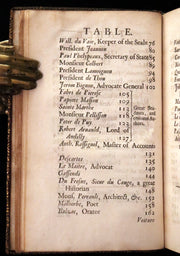 TABLE.
Will. du Vair, Keeper of the Seals 76
President Jeannin 79
Paul Phelipeaux, Secretary of State 85
Monsieur Colbert 89
President Lamoignon 94
President de Thou 98
Jerom Bignon, Advocate General 102
Fabri de Peiresc
Papyre Masson
Sainte Marthe
Monsieur Pellisson
Peter du Puy
Robert Arnauld, Lord of
Andilly
Anth. Rossignol, Master of Accounts
131
Descartes 135
Le Maitre, Advocate 140
Gassendi 144
Du Fresne, Sieur du Cange, a great
Historian 148
Mons. Perrault, Architect, &c. 152
Malherbe, Poet 158
Balzac, Orator 162
Voiture